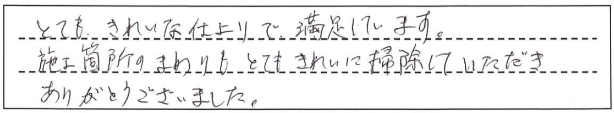 とても きれいな仕上りで、満足しています。
施工箇所のまわりも とてもきれいに掃除していただき
ありがとうございました。